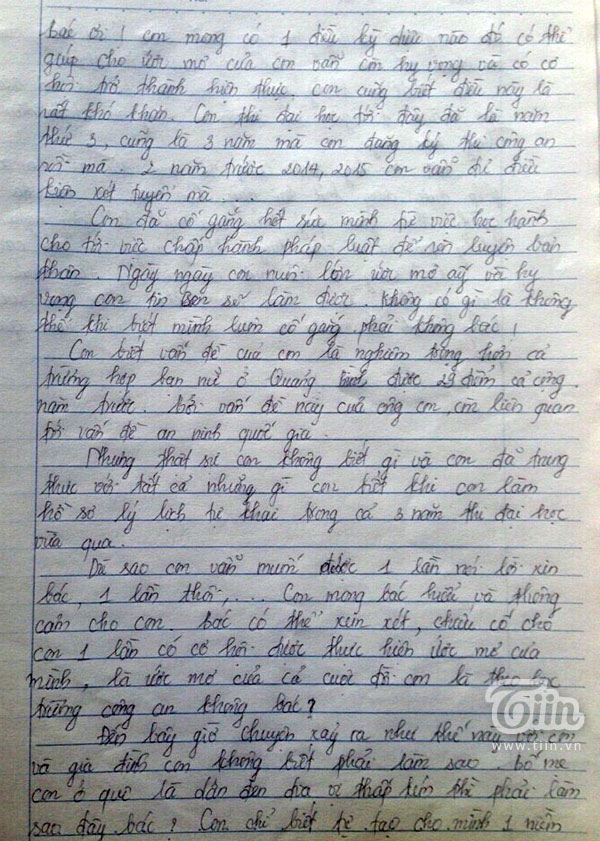 bác ơi! con mong có 1 điều kỳ diệu nào đó có thể
giúp cho ước mơ của con vẫn còn hy vọng và có cơ
hội trở thành hiện thực, con cũng biết điều này là
rất khó khăn. Con thi đại học tới đây đã là năm
thứ 3, cũng là 3 năm mà con đăng ký thi công an
rồi mà. 2 năm trước 2014, 2015 con vẫn đủ điều
kiện xét tuyển mà....
Con đã cố gắng hết sức mình từ việc học hành
cho tới việc chấp hành pháp luật để rèn luyện bản
thân. Ngày ngày con nuôi lớn ước mơ ấy và hy
vọng con tin con sẽ làm được. Không có gì là không
thể khi biết mình luôn cố gắng phải không bác!
Con biết vấn đề của con là nghiêm trọng hơn cả
trường hợp bạn nữ ở Quảng Bình được 29 điểm cả cộng
năm trước. Bởi vấn đề này của ông con, còn liên quan
tới vấn đề an ninh quốc gia.
Nhưng thật sự con không biết gì và con đã trung
thực với tất cả những gì con biết khi con làm
hồ sơ lý lịch tự khai trong cả 3 năm thi đại học
vừa qua.
Dù sao con vẫn muốn được 1 lần nói lời xin
bác, 1 lần thôi,.... Con mong bác hiểu và thông
cảm cho con. Bác có thể xem xét, chiếu cố cho
con 1 lần có cơ hội được thực hiện ước mơ của
mình, là ước mơ của cả cuộc đời con là theo học
trường công an không bác?
Đến bây giờ chuyện xảy ra như thế này với con
và gia đình con không biết phải làm sao. bố mẹ
con ở quê là dân đen địa vị thấp kém thì phải làm
sao đây bác? Con chỉ biết tự tạo cho mình 1 niềm
Tiin
www.tiin.vn